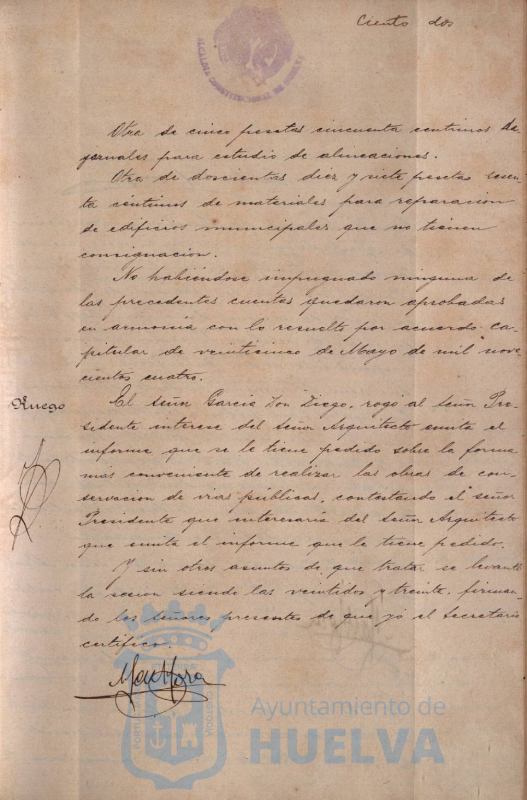 Ciento dos
ALCALDÍA CONSTITUCIONAL DE HUELVA
Otra de cinco pesetas cincuenta centimos de
jornales para estudio de alineaciones.
Otra de doscientas diez y siete pesetas sesen
ta céntimos de materiales para reparacion
de edificios municipales que no tienen
consignacion.
No habiéndose impugnado ninguna de
las precedentes cuentas quedaron aprobadas
en armonía con lo resuelto por acuerdo ca-
pitular de veinticinco de Mayo de mil nove
cientos cuatro.
Ruego
El señor García Don Diego, rogó al señor Pre-
sidente interese del Señor Arquitecto emita el
informe que se le tiene pedido sobre la forma
mas conveniente de realizar las obras de con-
servacion de vias públicas, contestando el señor
Presidente que interesaría del Señor Arquitecto
que emita el informe que le tiene pedido.
Y sin otros asuntos de que tratar se levantó
la sesion siendo las veintidos y treinta, firman-
do los señores presentes de que yó el Secretario
certifico.
Ayuntamiento de
HUELVA